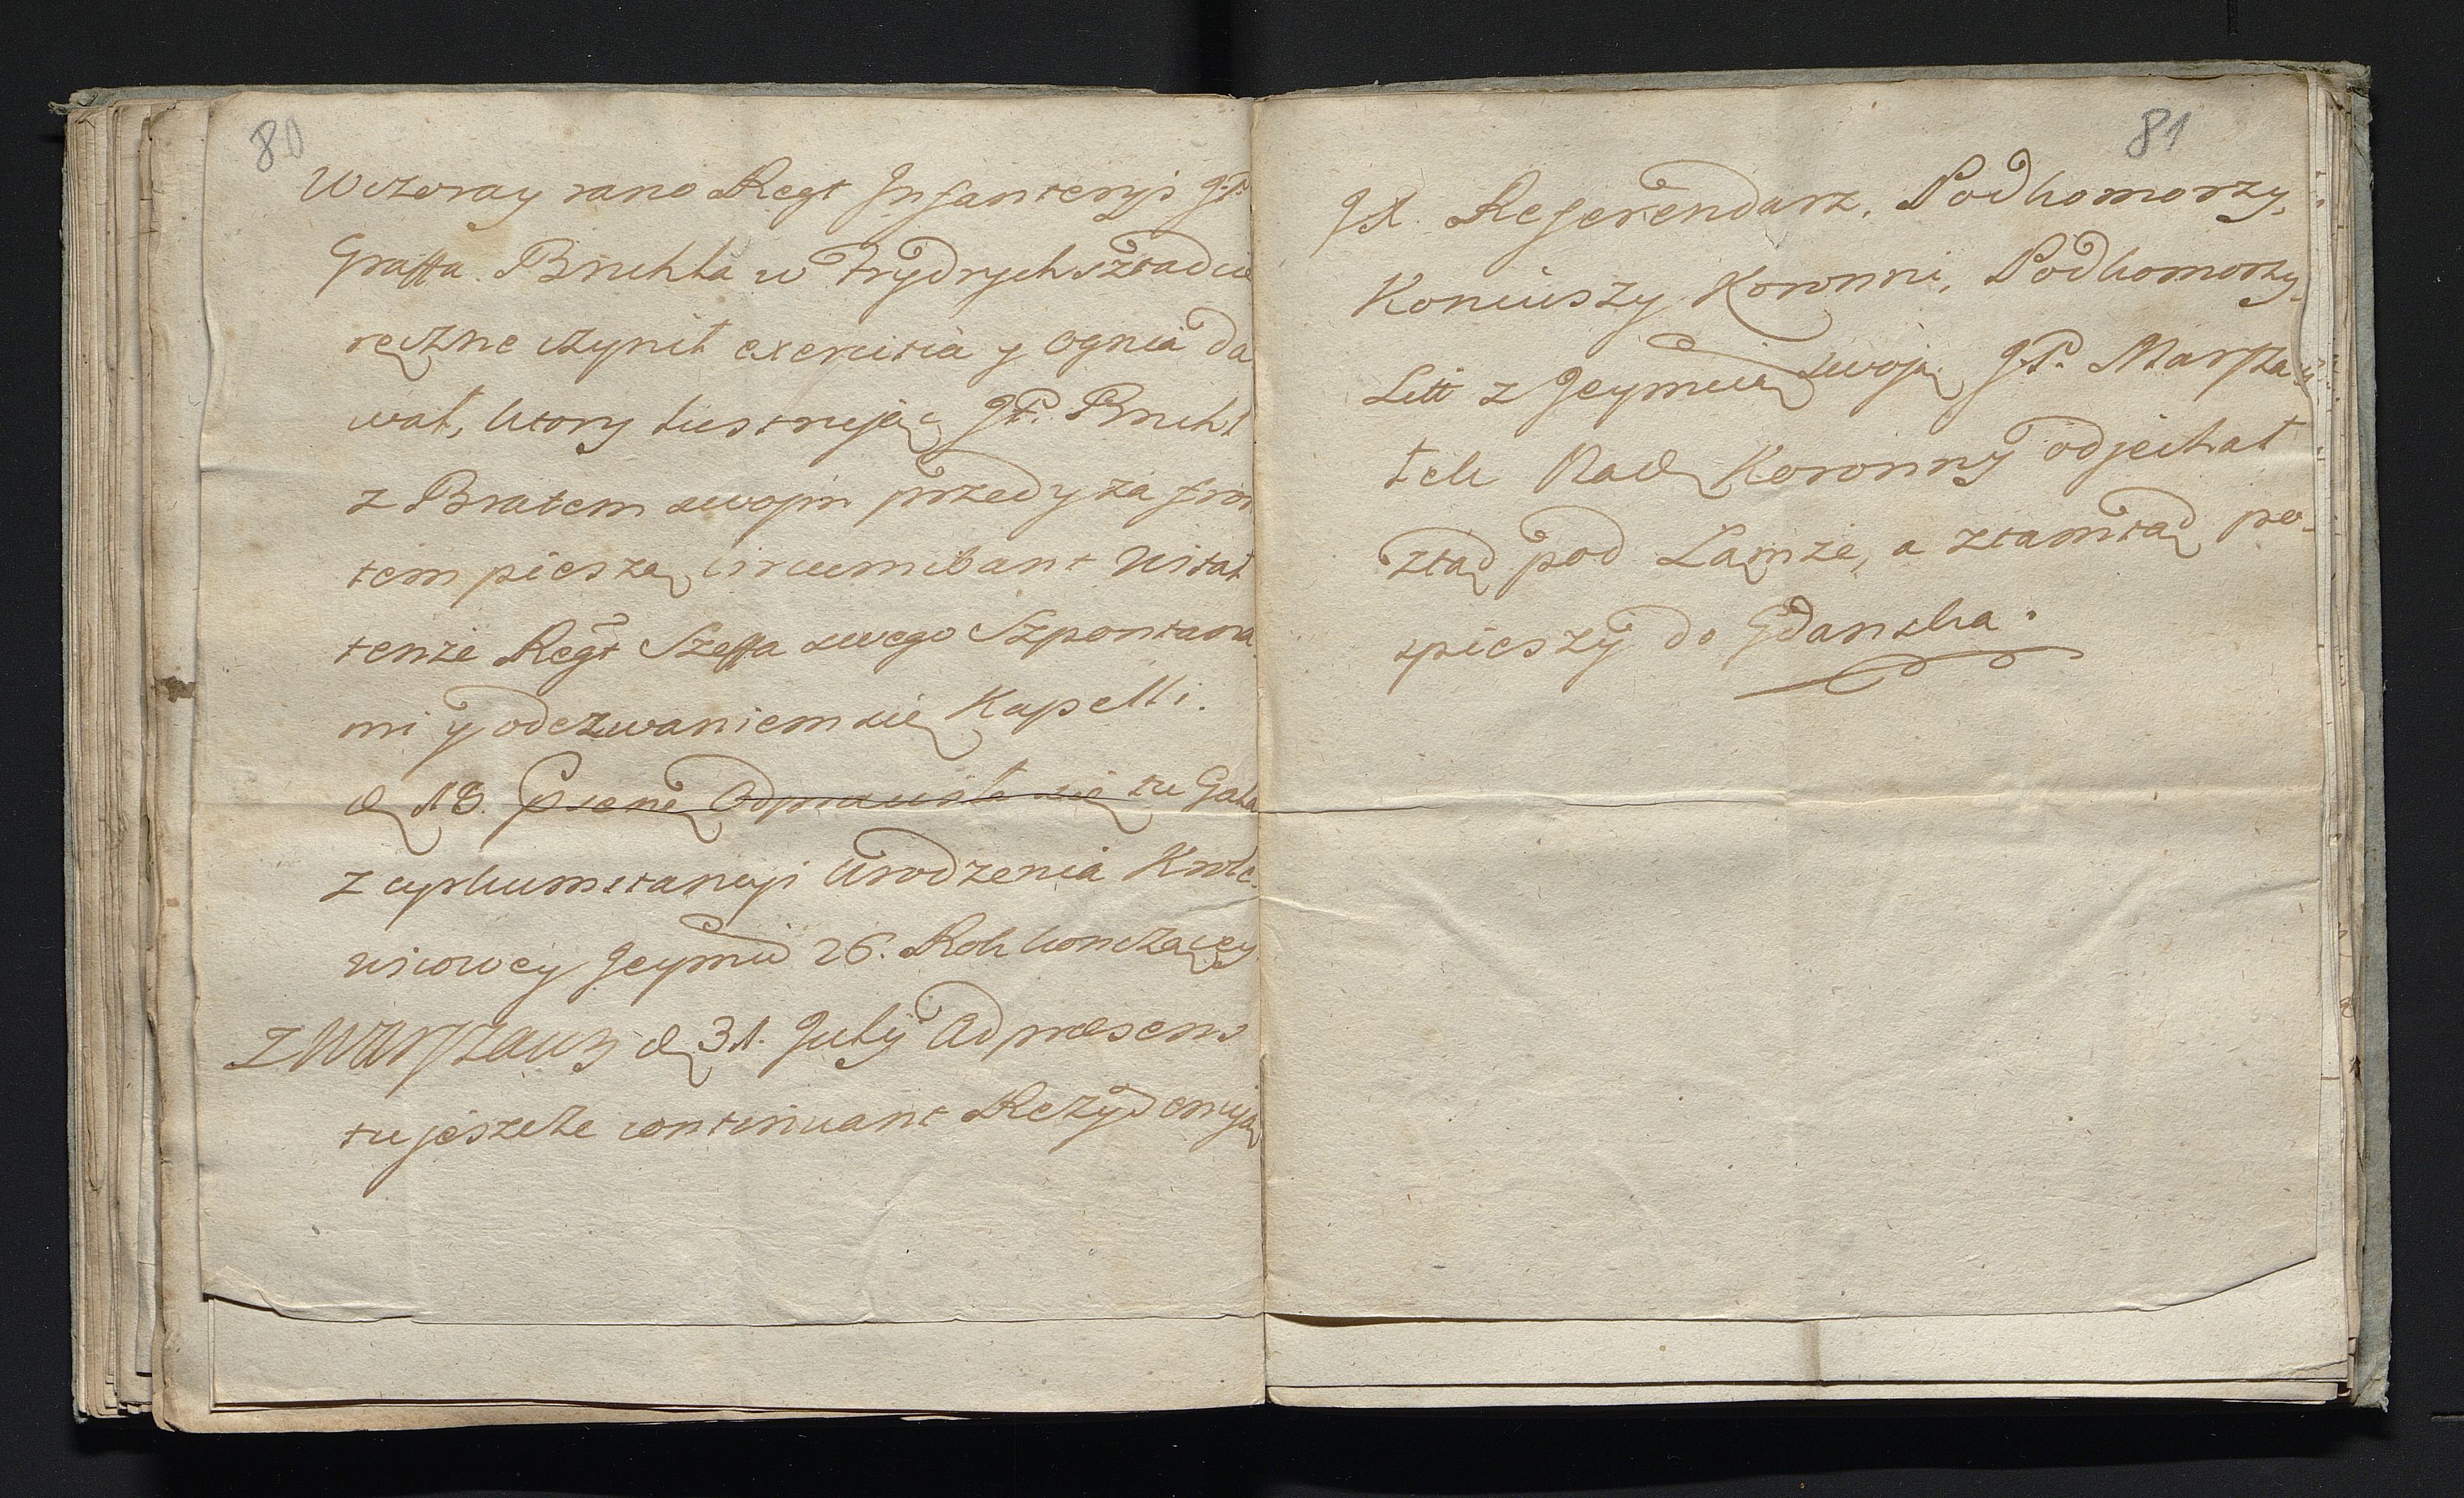 80
Wczoray rano Regt Infanteryi J.P.
Graffa Bruhla w Frydrychsztadcie
ręczne czynił exercitia y ognia da
wał, ktory lustrując J.P. Bruhl
z Bratem swoim przed y za fron
tem pieszą circumibant witał
tenże Regt Szeffa swego Szpontona
mi y odezwaniem się Kapelli.
d 18. psent Odprawiła się tu Gala
z cyrkumstancyi Urodzenia Krole-
wicowey Jeymci 26. Rok konczącey
Z WARSZAWY d 31. July Ad præsens
tu jeszcze continuant Rezydencyą
81
Referendarz, Podkomorzy,
Koniuszy Koronni, Podkomorzy
Litt z Jeymcią swoją JP. Marsza
łek Nad Koronny odjechał
ztąd pod Łamże, a ztamtąd po-
spieszy do Gdanska.